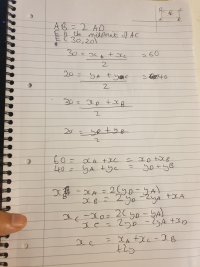 AB = 2 AD
E is the midpoint of AC
E (30,20)
30 = xA + xC = 60
2
20 = yA + yC = 40
2
30 = xD + xB
2
20 = yD + yB
2
60 = xA + xC = xD + xB
40 = yA + yC = yD + yB
xB - xA = 2(yD - yA)
xB = 2yD - 2yA + xA
xC - xD = 2(yD - yA)
xC = 2yD - 2yA + xD
xC = xA + xC - xB